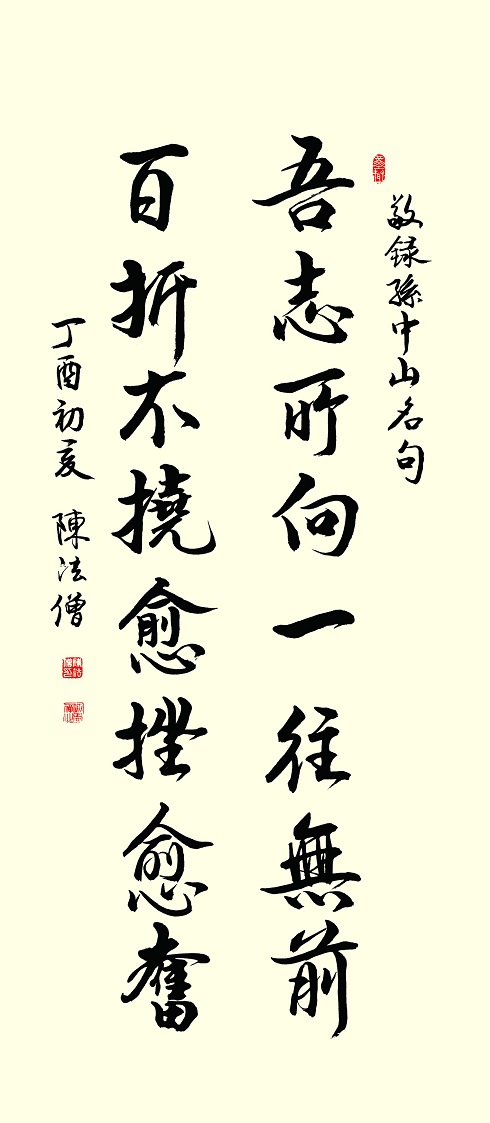 敬録孫中山名句
吾志所向一往無前
百折不撓愈挫愈奮
丁酉初夏 陳法僧